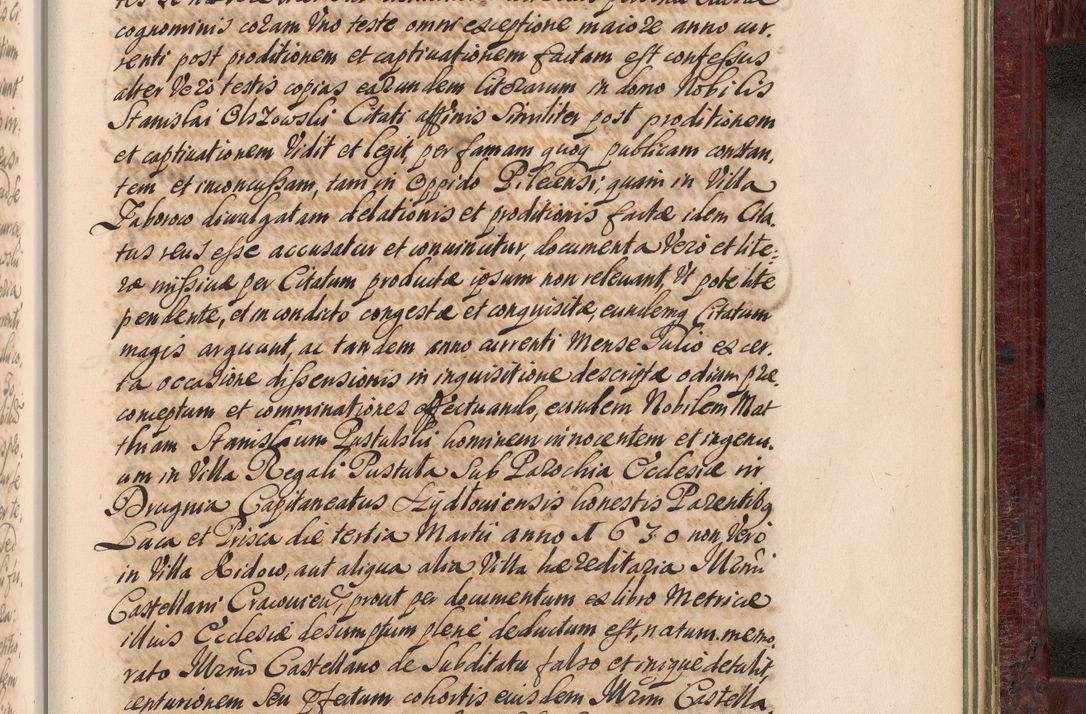 cognominis coram Uno teste omni exceptione maiore anno cur,
renti post proditionem et captivationem factam est confessus
alter Vero testis copias earundem literarum in dono Nobilis
Stanislai Olszowski Citati affinis Similiter post proditionem
et captivationem Vidit et legit, per famam quoq publicam constan,
tem et inconcussam, tam in Oppido Pilecensi, quam in Villa
Zaborow divulgatam delationis et proditionis factæ idem Cita
tus reus esse accusatur et convincitur, documenta Vero et lite:
ræ missivæ per Citatum productæ ipsum non relevant, Ut pote lite
pendente, et in condicto congestæ et conquisitæ, eundemq Citatum
magis arguunt, ac tandem anno currenti Mense Julio ex cer,
ta occasione dissensionis in inquisitione descriptæ odium præ,
conceptum et comminationes effectuando, eundem Nobilem Mat
thiam Stanislaum Pastulski hominem innocentem et ingenu,
um in Villa Regali Pustuła Sub Parochia Ecclesiæ in
Drugnia Capitaneatus Szydłoviensis honestis Parentibq
Luca et Prisca die tertia Martii anno 1630 non Vero
in Villa Kidow, aut aliqua alia Villa hæreditaria Illrmi
Castellani Cracovien, prout per documentum ex libro Metricæ
illius Ecclesiæ desumptum plene deductum est, natum memo,
rato Illrmo Castellano de Subditatu falso et iniquè detulit,
centurionem Seu Præfectum cohortis eiusdem Illrmi Castella,